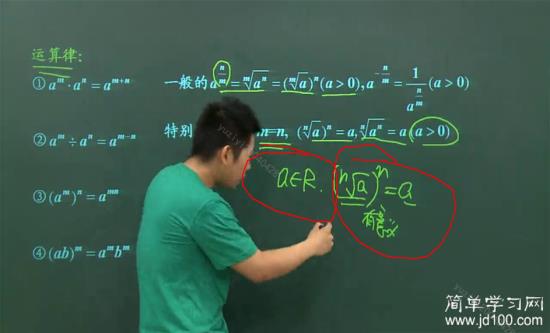 运算律:
① aᵐ·aⁿ=aᵐ⁺ⁿ
② aᵐ÷aⁿ=aᵐ⁻ⁿ
③ (aᵐ)ⁿ=aᵐⁿ
④ (ab)ᵐ=aᵐbᵐ
一般的 a^(n/m)=ᵐ√aⁿ=(ᵐ√a)ⁿ(a>0), a^(-n/m)=1/a^(n/m)(a>0)
特别 m=n, (ⁿ√a)ⁿ=a, ⁿ√aⁿ=a(a>0)
a∈R. (ⁿ√a)ⁿ=a
简单学习网
www.jd100.com